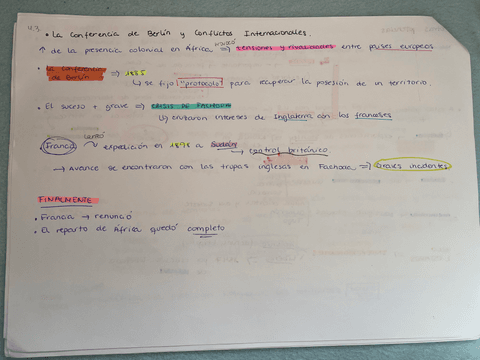 4.3. • La Conferencia de Berlín y Conflictos Internacionales.
↑ de la presencia colonial en África ⇒ provocó tensiones y rivalidades entre países europeos
• La conferencia de Berlín ⇒ 1885
↳ se fijo "protocolo" para recuperar la posesión de un territorio.
• El suceso + grave ⇒ CRISIS DE FACHODA
↳ chocaron intereses de Inglaterra con los franceses
• Francia envió expedición en 1896 a Sudán → control británico
→ Avance se encontraron con las tropas inglesas en Fachoda ⇒ graves incidentes
FINALMENTE
• Francia → renunció
• El reparto de África quedó completo